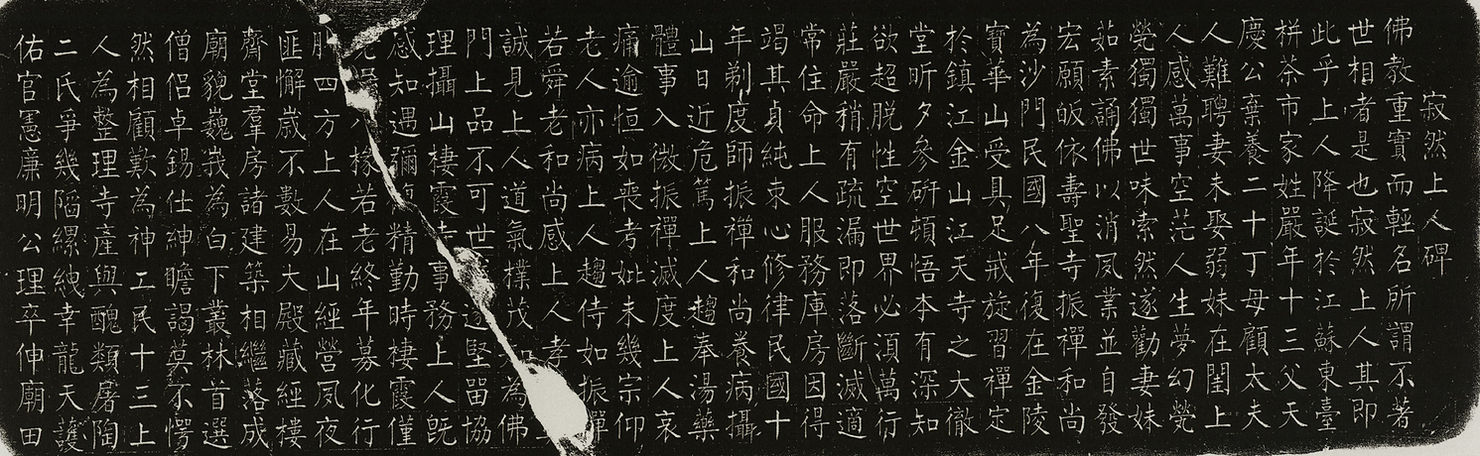 寂然上人碑
佛教重實而輕名所謂不著
世相者是也寂然上人其即
此乎上人降誕於江蘇東臺
栟茶市家姓嚴年十三父天
慶公棄養二十丁母顧太夫
人難聘妻未娶弱妹在閨上
人感萬事空茫人生夢幻煢
煢獨獨世味索然遂勸妻妹
茹素誦佛以消夙業並自發
宏願皈依壽聖寺振禪和尚
為沙門民國八年復在金陵
寶華山受具足戒旋習禪定
於鎮江金山江天寺之大徹
堂昕夕參研頓悟本有深知
欲超脫性空世界必須萬行
莊嚴稍有疏漏即落斷滅適
常住命上人服務庫房因得
竭其貞純束心修律民國十
年剃度師振禪和尚養病攝
山日近危篤上人趨奉湯藥
體事入微振禪滅度上人哀
痛逾恒如喪考妣未幾宗仰
老人亦病上人趨侍如振禪
若舜老和尚感上人孝
誠見上人道氣樸茂為佛
門上品不可世遂堅留協
理攝山棲霞寺事務上人既
感知遇彌精勤時棲霞僅
老若老終年募化行
腳四方上人在山經營夙夜
匪懈歲不數易大殿藏經樓
齋堂羣房諸建築相繼落成
廟貌巍峩為白下叢林首選
僧侶卓錫仕紳瞻謁莫不愕
然相顧歎為神工民十三上
人為整理寺產與醜類屠陶
二氏爭幾陷縲絏幸龍天護
佑官憲廉明公理卒伸廟田